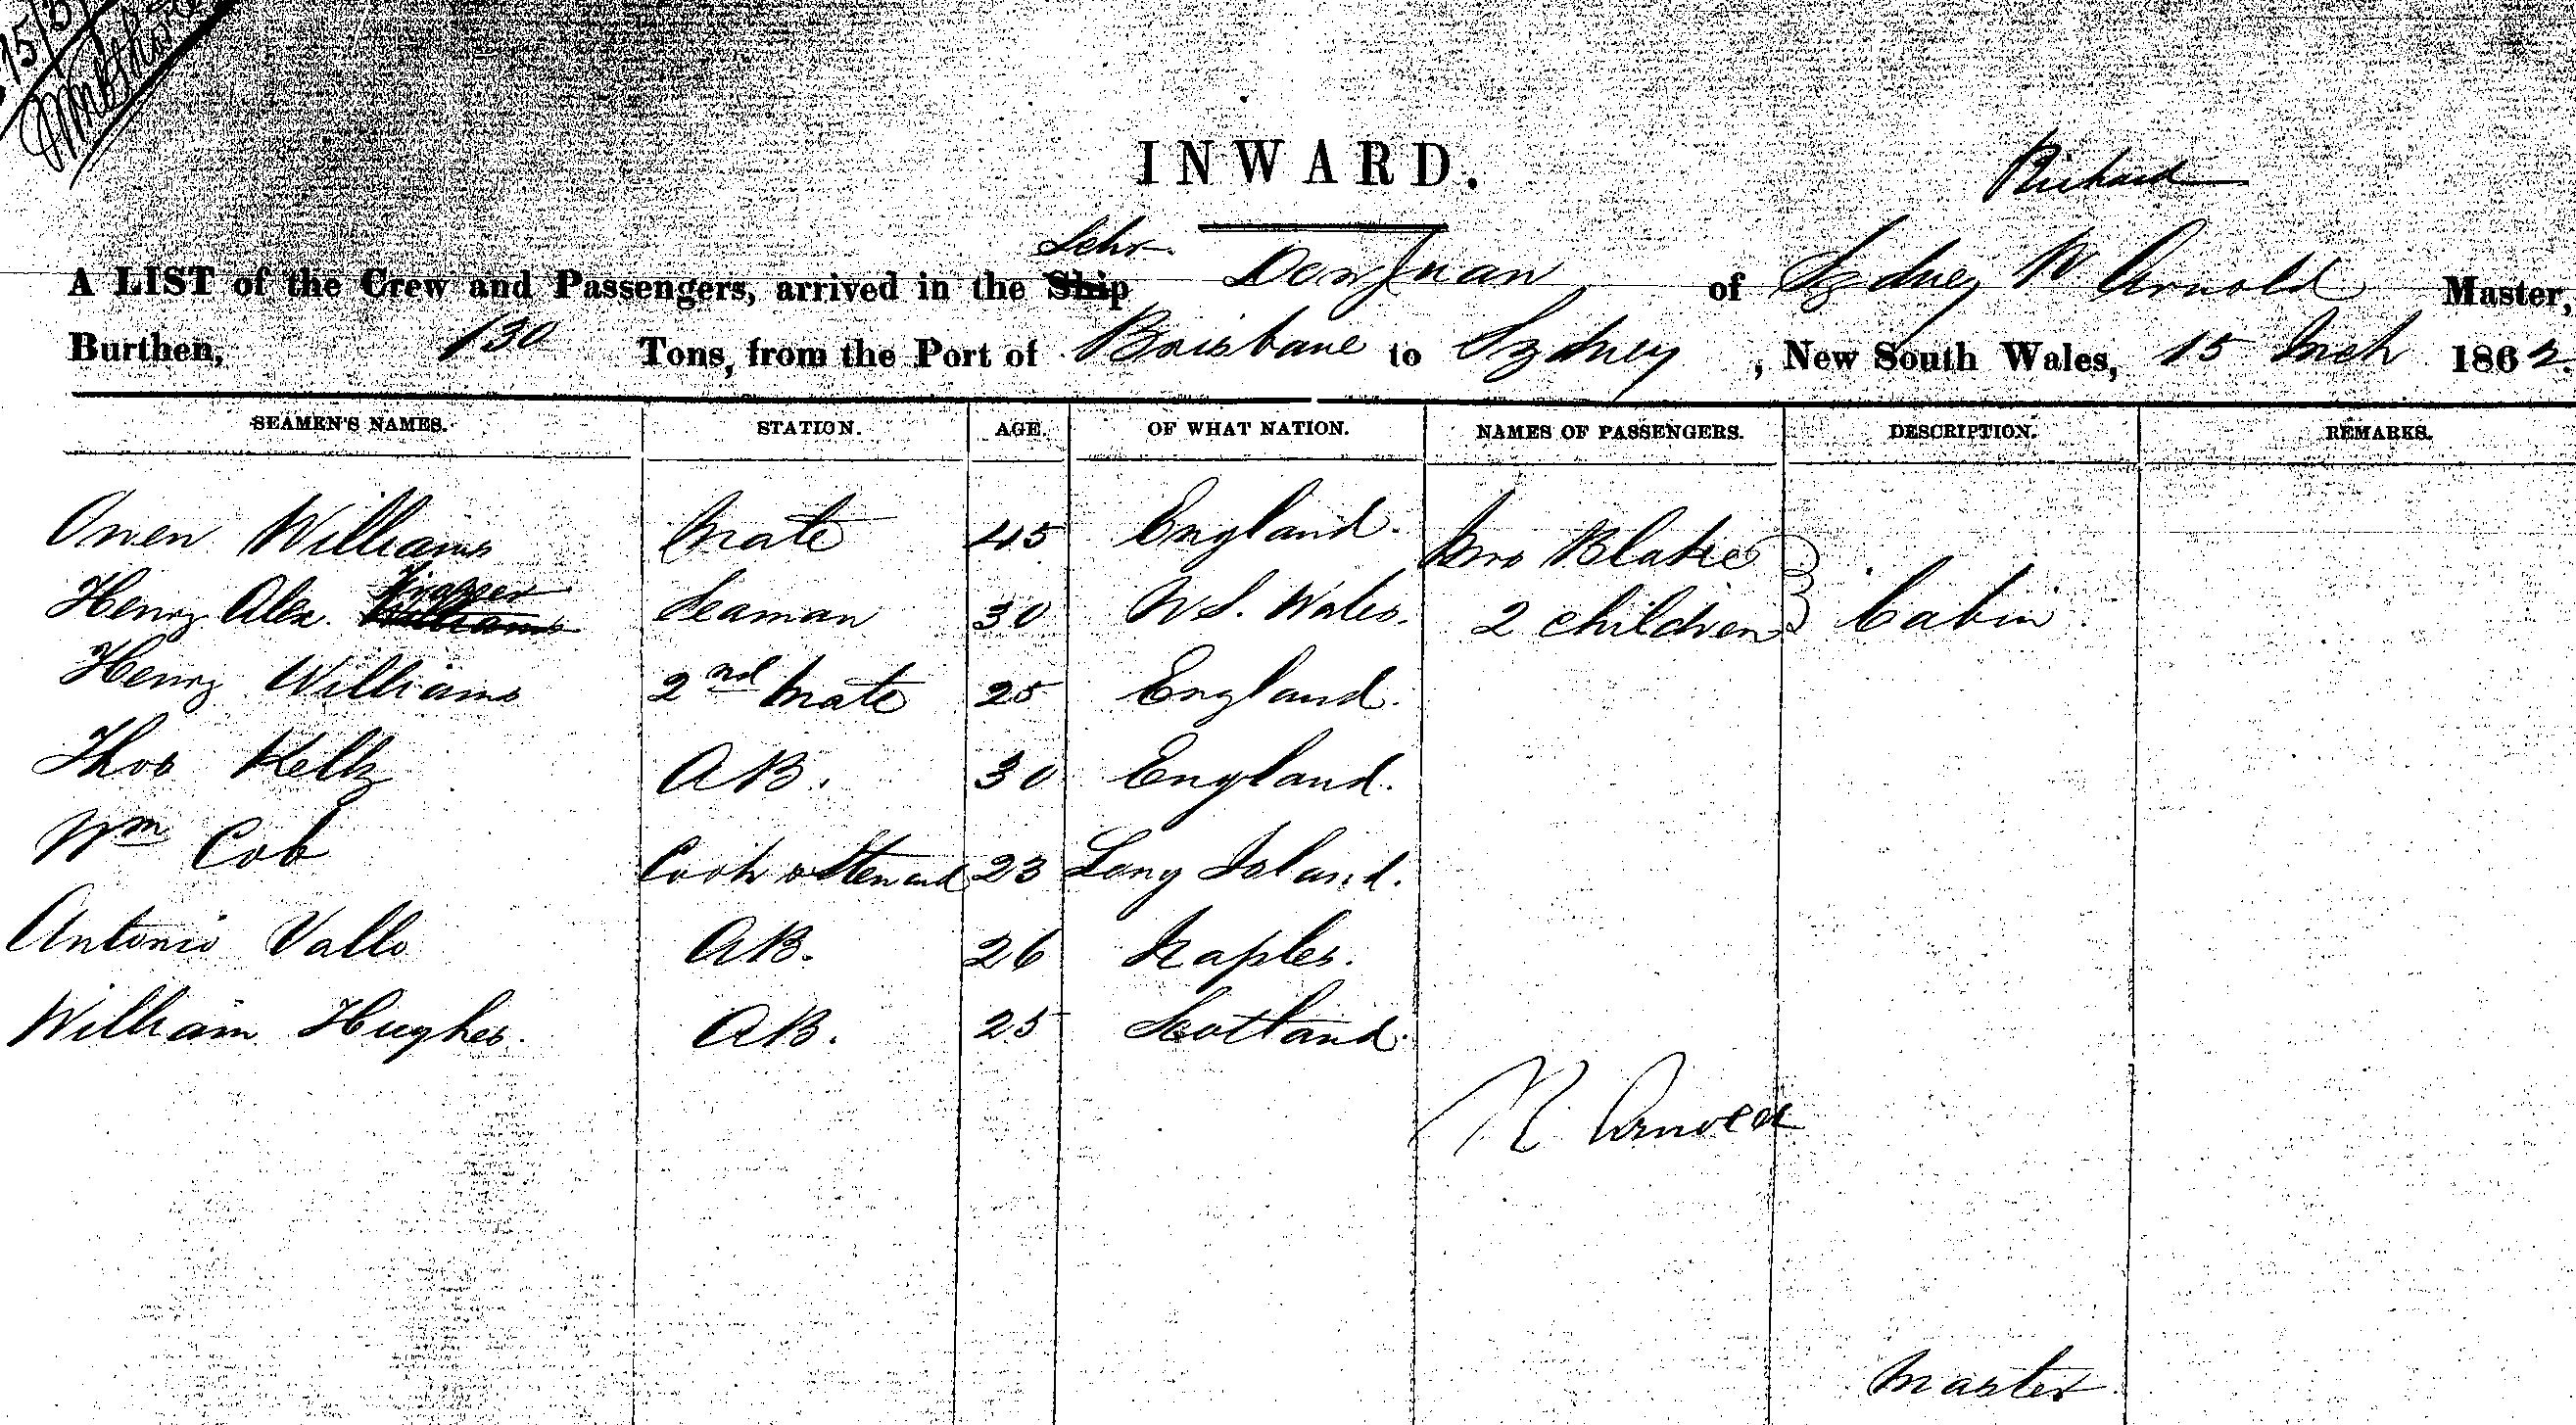 15/3/
INWARD.
Richard
Schr.
A LIST of the Crew and Passengers, arrived in the Ship Don Juan of Sydney W Arnold Master,
Burthen, 130 Tons, from the Port of Brisbane to Sydney, New South Wales, 15 Mch 1862.
SEAMEN'S NAMES. STATION. AGE. OF WHAT NATION. NAMES OF PASSENGERS. DESCRIPTION. REMARKS.
Owen Williams Mate 45 England. Mrs Blake
Frazer
Henry Alex. Williams Seaman 30 N S. Wales. 2 children Cabin
Henry Williams 2nd Mate 25 England.
Thos Kelly AB. 30 England.
Wm Cob Cook & Steward 23 Long Island.
Antonio Vallo AB. 26 Naples.
William Hughes. AB. 25 Scotland.
R Arnold
Master